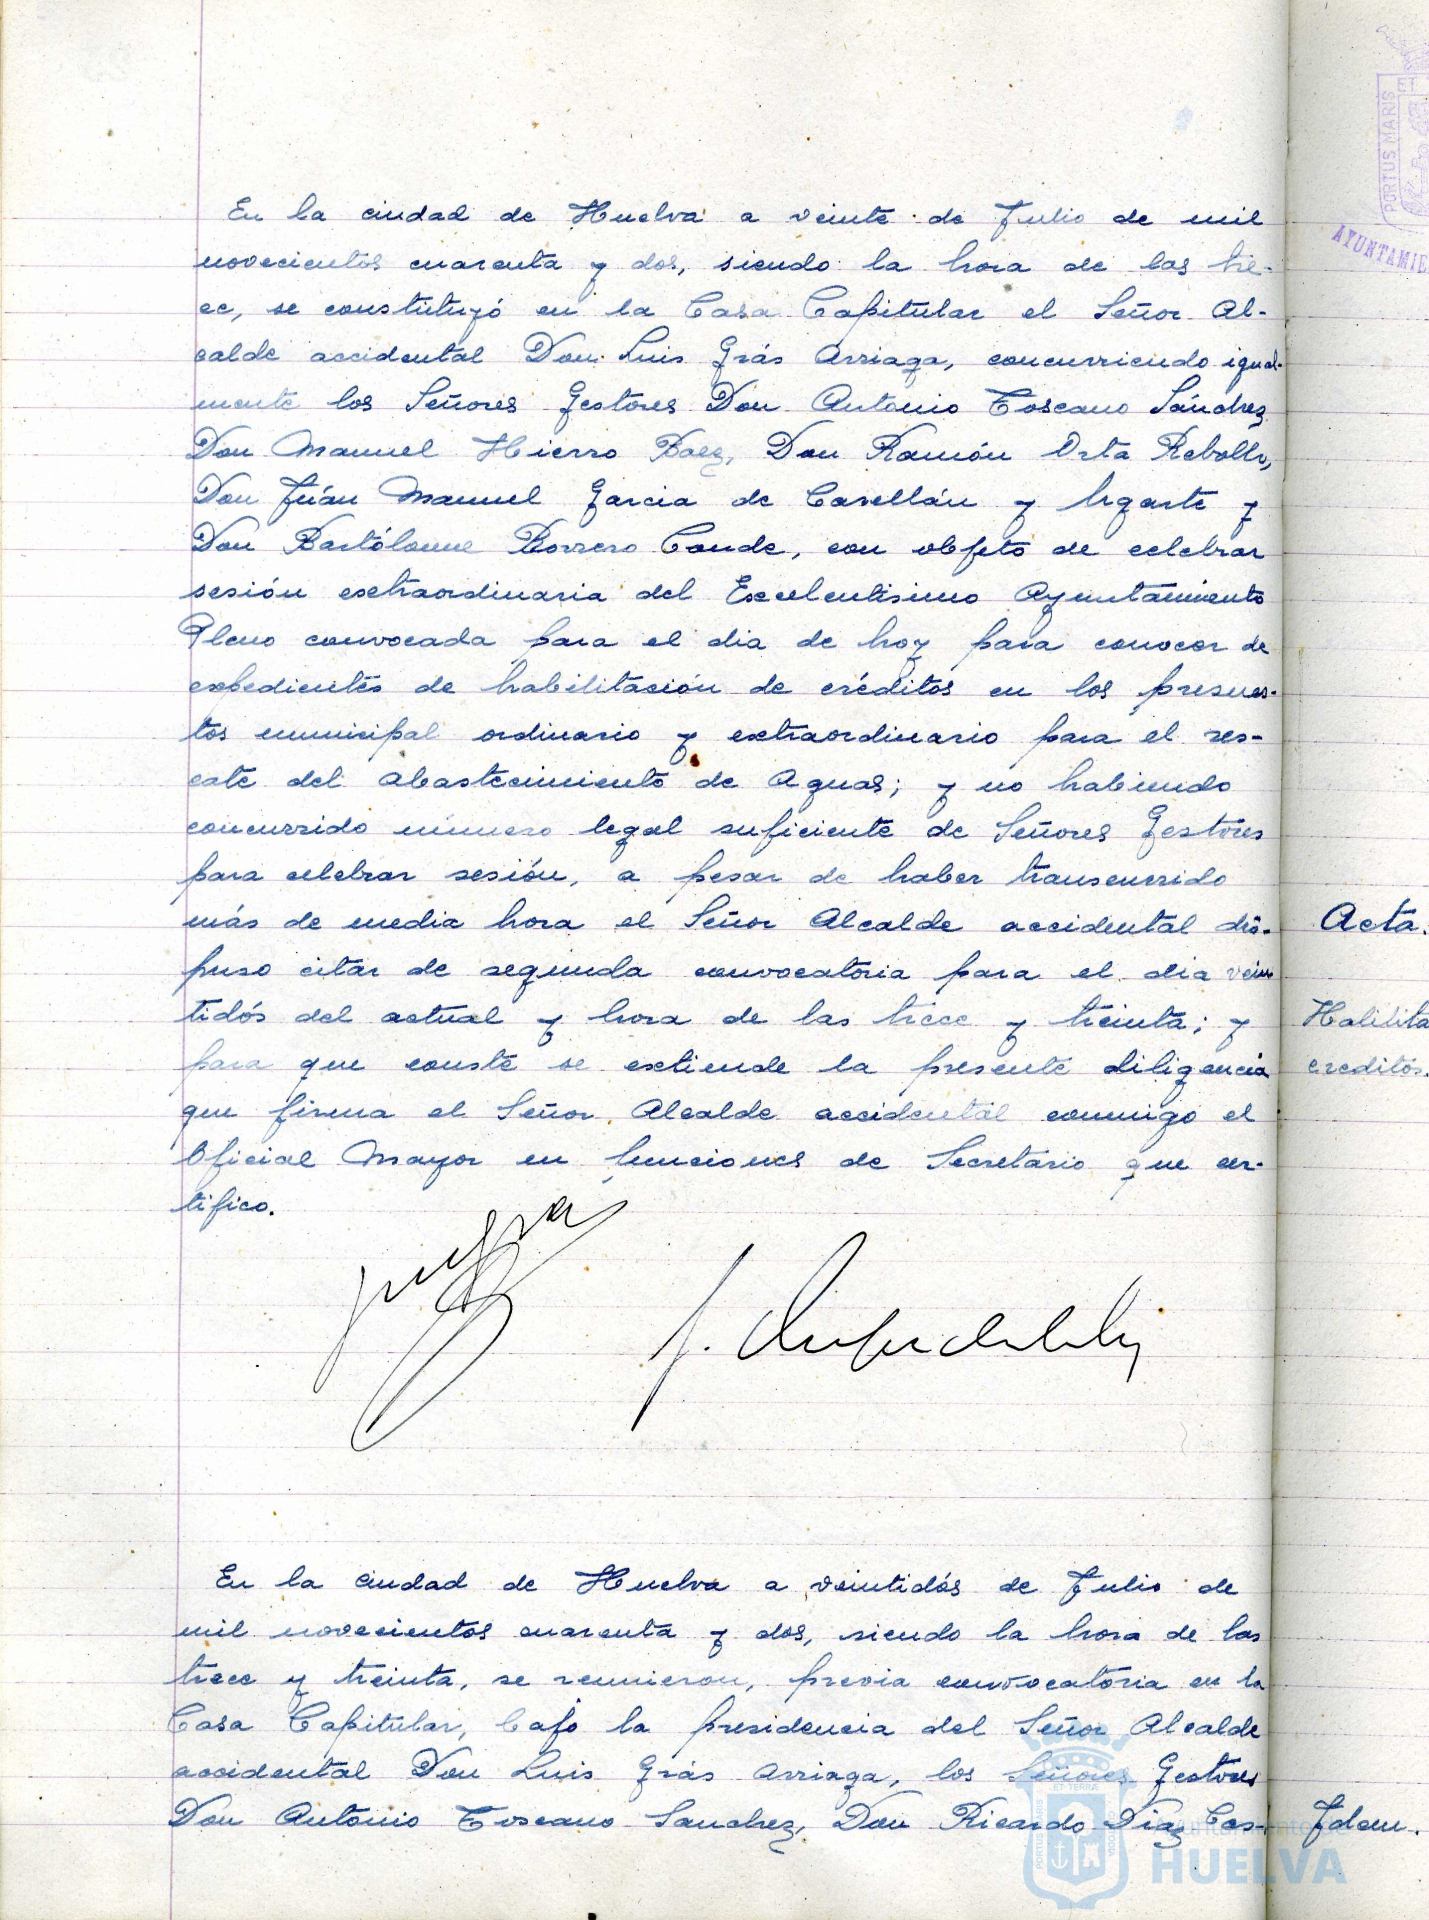 En la ciudad de Huelva a veinte de Julio de mil
novecientos cuarenta y dos, siendo la hora de las tre-
ce, se constituyó en la Casa Capitular el Señor Al-
calde accidental Don Luis Grás Arriaga, concurriendo igual-
mente los Señores Gestores Don Antonio Toscano Sánchez
Don Manuel Hierro Baez, Don Ramón Orta Rebollo,
Don Juán Manuel Garcia de Casellán y Ugarte y
Don Bartólome Borrero Conde, con objeto de celebrar
sesión extraordinaria del Excelentisimo Ayuntamiento
Pleno convocada para el dia de hoy para conocer de
expedientes de habilitación de créditos en los presues-
tos municipal ordinario y extraordinario para el res-
cate del abastecimiento de Aguas; y no habiendo
concurrido número legal suficiente de Señores Gestores
para celebrar sesión, a pesar de haber transcurrido
más de media hora el Señor Alcalde accidental dis-
puso citar de segunda convocatoria para el dia vein
tidós del actual y hora de las trece y treinta; y
para que conste se extiende la presente diligencia
que firma el Señor Alcalde accidental conmigo el
Oficial Mayor en funciones de Secretario que cer-
tifico.
En la ciudad de Huelva a veintidós de Julio de
mil novecientos cuarenta y dos, siendo la hora de las
trece y treinta, se reunieron, previa convocatoria en la
Casa Capitular, bajo la presidencia del Señor Alcalde
accidental Don Luis Grás Arriaga, los Señores Gestores
Don Antonio Toscano Sanchez, Don Ricardo Diaz Cas-
PORTUS MARIS
ET
AYUNTAMIE
Acta.
Habilita
creditos.
Idem.
Ayuntamiento de
HUELVA